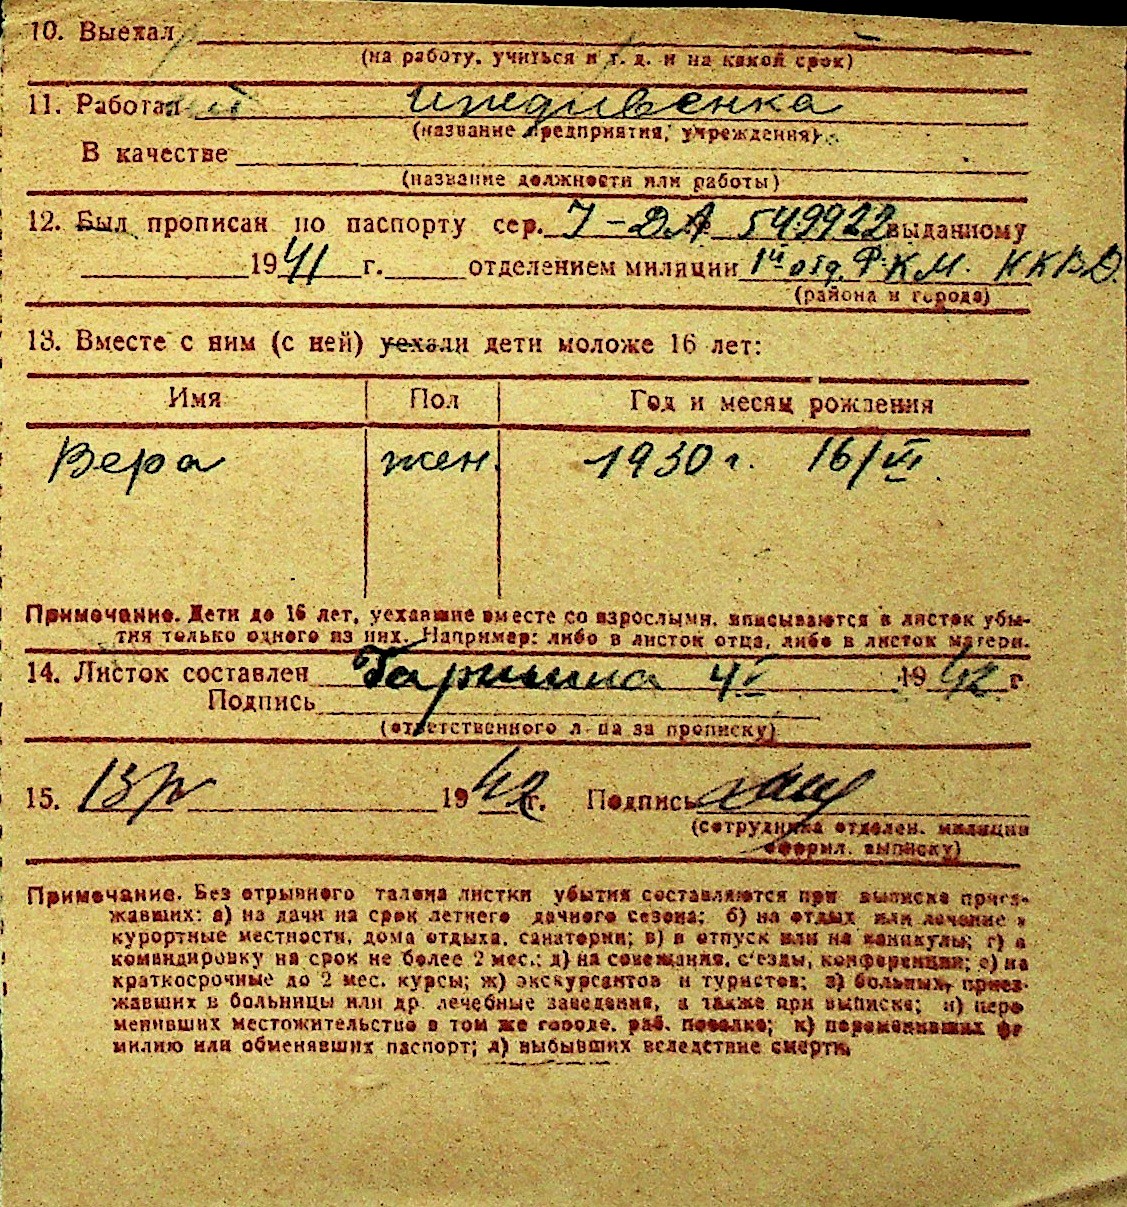 10. Выехал
(на работу, учиться и т. д. и на какой срок)
11. Работал иждивенка
(название предприятия, учреждения)
В качестве
(название должности или работы)
12. Был прописан по паспорту сер. I-ДА № 549922 выданному
1941 г. отделением милиции 1й отд. Р.К.М. НКВД.
(района и города)
13. Вместе с ним (с ней) уехали дети моложе 16 лет:
Имя Пол Год и месяц рождения
Вера жен. 1930 г. 16/VI.
Примечание. Дети до 16 лет, уехавшие вместе со взрослыми, вписываются в листок убы-
тия только одного из них. Например: либо в листок отца, либо в листок матери.
14. Листок составлен 4/V 1942 г
Подпись
(ответственного л-ца за прописку)
15. 13/V 1942 г. Подпись
(сотрудника отделен. милиции
оформл. выписку)
Примечание. Без отрывного талона листки убытия составляются при выписке приез-
жавших: а) на дачи на срок летнего дачного сезона; б) на отдых или лечение в
курортные местности, дома отдыха, санатории; в) в отпуск или на каникулы; г) в
командировку на срок не более 2 мес.; д) на совещания, с'езды, конференции; е) на
краткосрочные до 2 мес. курсы; ж) экскурсантов и туристов; з) больных, приез-
жавших в больницы или др. лечебные заведения, а также при выписке; и) пере
менивших местожительство в том же городе, раб. поселке; к) переменивших фа
милию или обменявших паспорт; л) выбывших вследствие смерти.